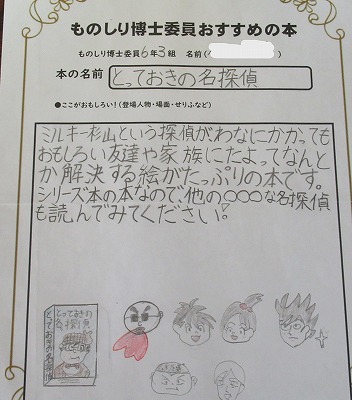 ものしり博士委員おすすめの本
ものしり博士委員6年3組 名前(　)
本の名前 とっておきの名探偵
●ここがおもしろい!(登場人物・場面・せりふなど)
ミルキー杉山という探偵がわなにかかっても
おもしろい友達や家族にたよってなんと
か解決する絵がたっぷりの本です。
シリーズ本の本なので、他の○○○な名探偵
も読んでみてください!
とっておきの
名探偵
とっておきの名探偵